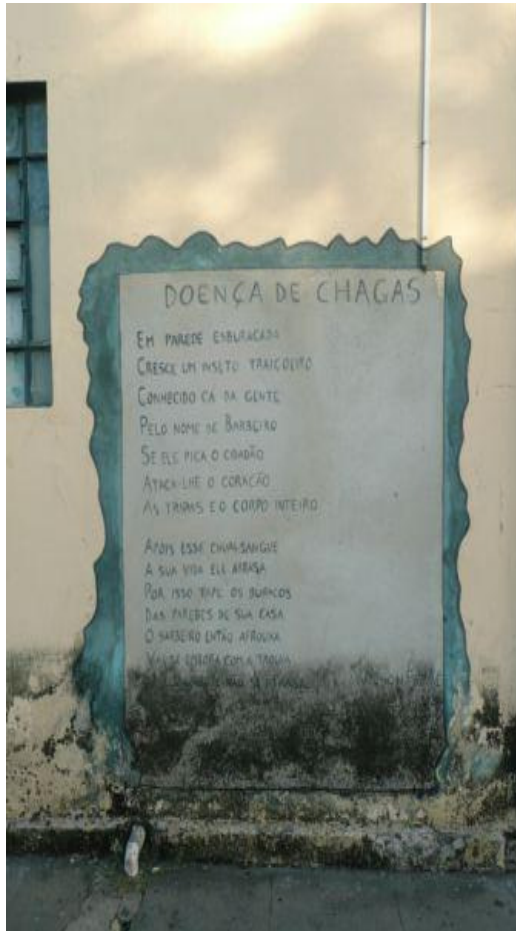 DOENÇA DE CHAGAS
EM PAREDE ESBURACADA
CRESCE UM INSETO TRAIÇOEIRO
CONHECIDO CÁ DA GENTE
PELO NOME DE BARBEIRO
SE ELE PICA O CIDADÃO
ATACA-LHE O CORAÇÃO
AS TRIPAS E O CORPO INTEIRO
APOIS ESSE CHUPA-SANGUE
A SUA VIDA ELE ARRASA
POR ISSO TAPE OS BURACOS
DAS PAREDES DE SUA CASA
O BARBEIRO ENTÃO AFROUXA
EMBORA COM A TROUXA
E NÃO SE